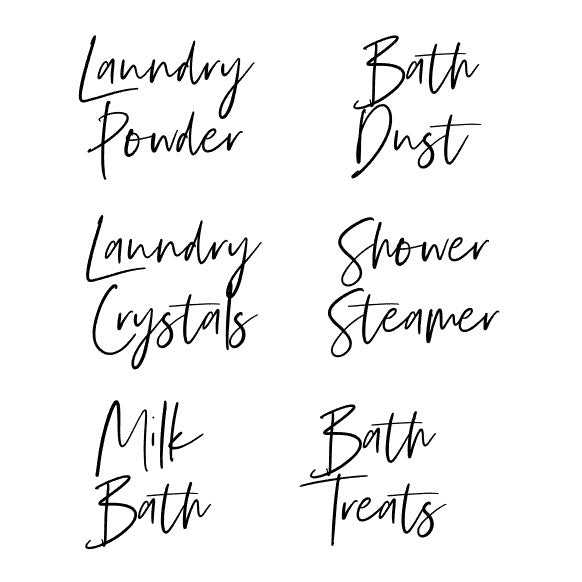 Laundry
Powder
Bath
Dust
Laundry
Crystals
Shower
Steamer
Milk
Bath
Bath
Treats